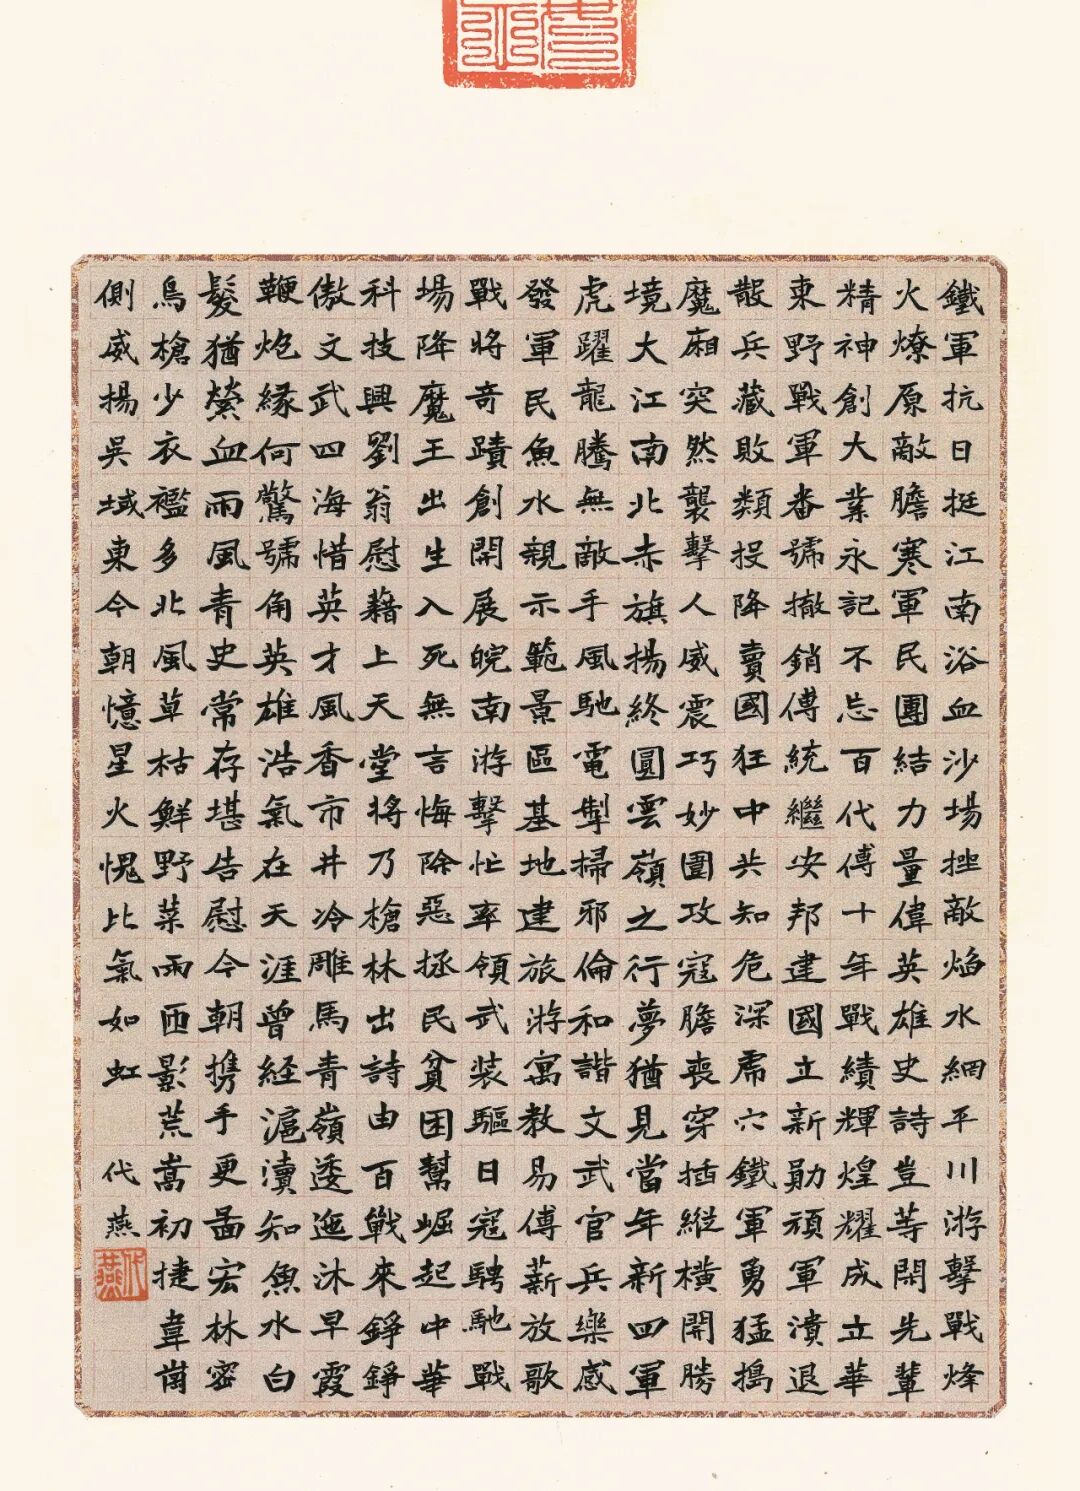 鐵軍抗日挺江南浴血沙場挫敵焰水網平川游擊戰烽
火燎原敵膽寒軍民團結力量偉英雄史詩豈等閑先輩
精神創大業永記不忘百代傳十年戰績輝煌耀成立華
東野戰軍番號撤銷傳統繼安邦建國立新勛頑軍潰退
散兵藏敗類投降賣國狂中共知危深虎穴鐵軍勇猛搗
魔廂突然襲擊人威震巧妙圍攻寇膽喪穿插縱橫開勝
境大江南北赤旗揚終圓雲嶺之行夢猶見當年新四軍
虎躍龍騰無敵手風馳電掣掃邪倫和諧文武官兵樂感
發軍民魚水親示範景區基地建旅游寓教易傳薪放歌
戰將奇蹟創開展皖南游擊忙率領武裝驅日寇騁馳戰
場降魔王出生入死無言悔除惡拯民貧困幫崛起中華
科技興劉翁慰藉上天堂將乃槍林出詩由百戰來錚錚
傲文武四海惜英才風香市井冷雕馬青嶺逶迤沐早霞
鞭炮緣何驚號角英雄浩氣在天涯曾経滬瀆知魚水白
髮猶縈血雨風青史常存堪告慰今朝携手更啚宏林密
鳥槍少衣襤多北風草枯鮮野菜雨匝影荒嵩初捷韋崗
側威揚吳域東今朝憶星火愧比氣如虹 代燕
代燕